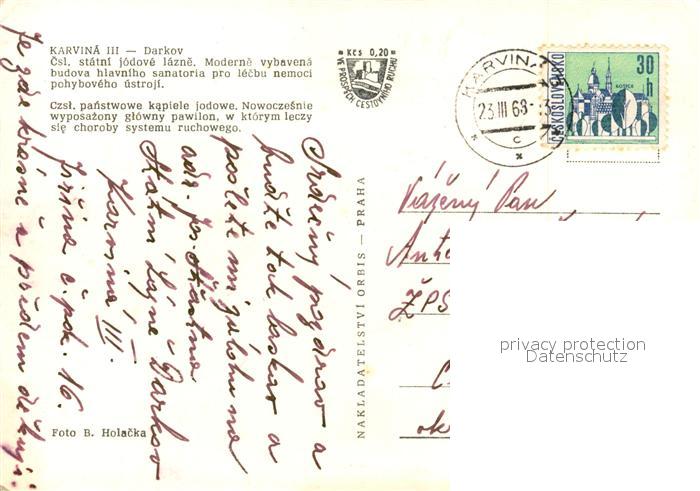 KARVINÁ III — Darkov
Čsl. státní jódové lázně. Moderně vybavená
budova hlavního sanatoria pro léčbu nemoci
pohybového ústrojí.
Czsł. państwowe kąpiele jodowe. Nowocześnie
wyposażony główny pawilon, w którym leczy
się choroby systemu ruchowego.
Kčs 0,20
VE PROSPĚCH CESTOVNÍHO RUCHU
KARVINÁ
23 III 68
C
30 h
ČESKOSLOVENSKO
KOŠICE
Srdečný pozdrav a
buďte tak laskav a
pošlete mi zálohu na
adr.
Státní Lázně Darkov
Karviná III.
Jiřina č. pok. 16.
Je zde krásně a předem děkuji.
NAKLADATELSTVÍ ORBIS — PRAHA
Foto B. Holačka
Vážený Pan
ŽPS
privacy protection
Datenschutz